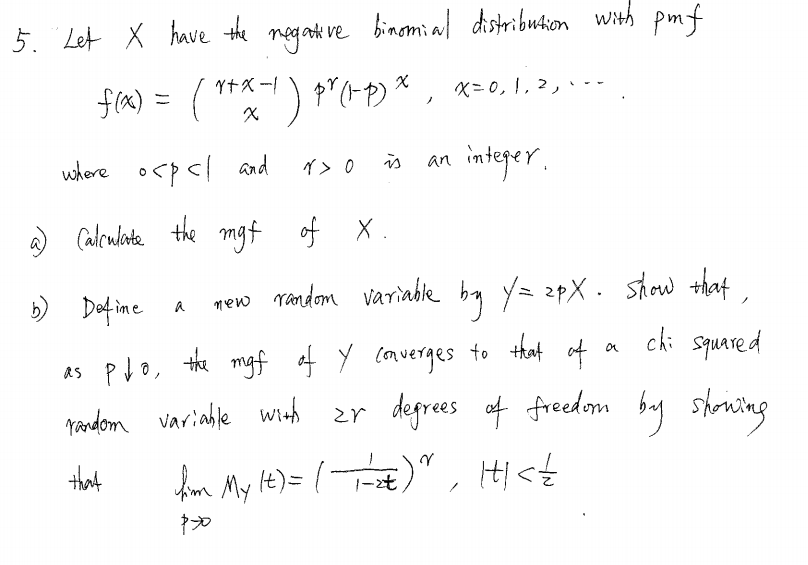 5. Let X have the negative binomial distribution with pmf
f(x) = (r+x-1 x) p^r (1-p)^x, x=0, 1, 2, ....
where 0<p<1 and r>0 is an integer.
a) Calculate the mgf of X.
b) Define a new random variable by Y=2pX. Show that,
as p↓0, the mgf of Y converges to that of a chi squared
random variable with 2r degrees of freedom by showing
that lim p→0 My(t)=(1/(1-2t))^r, |t|<1/2